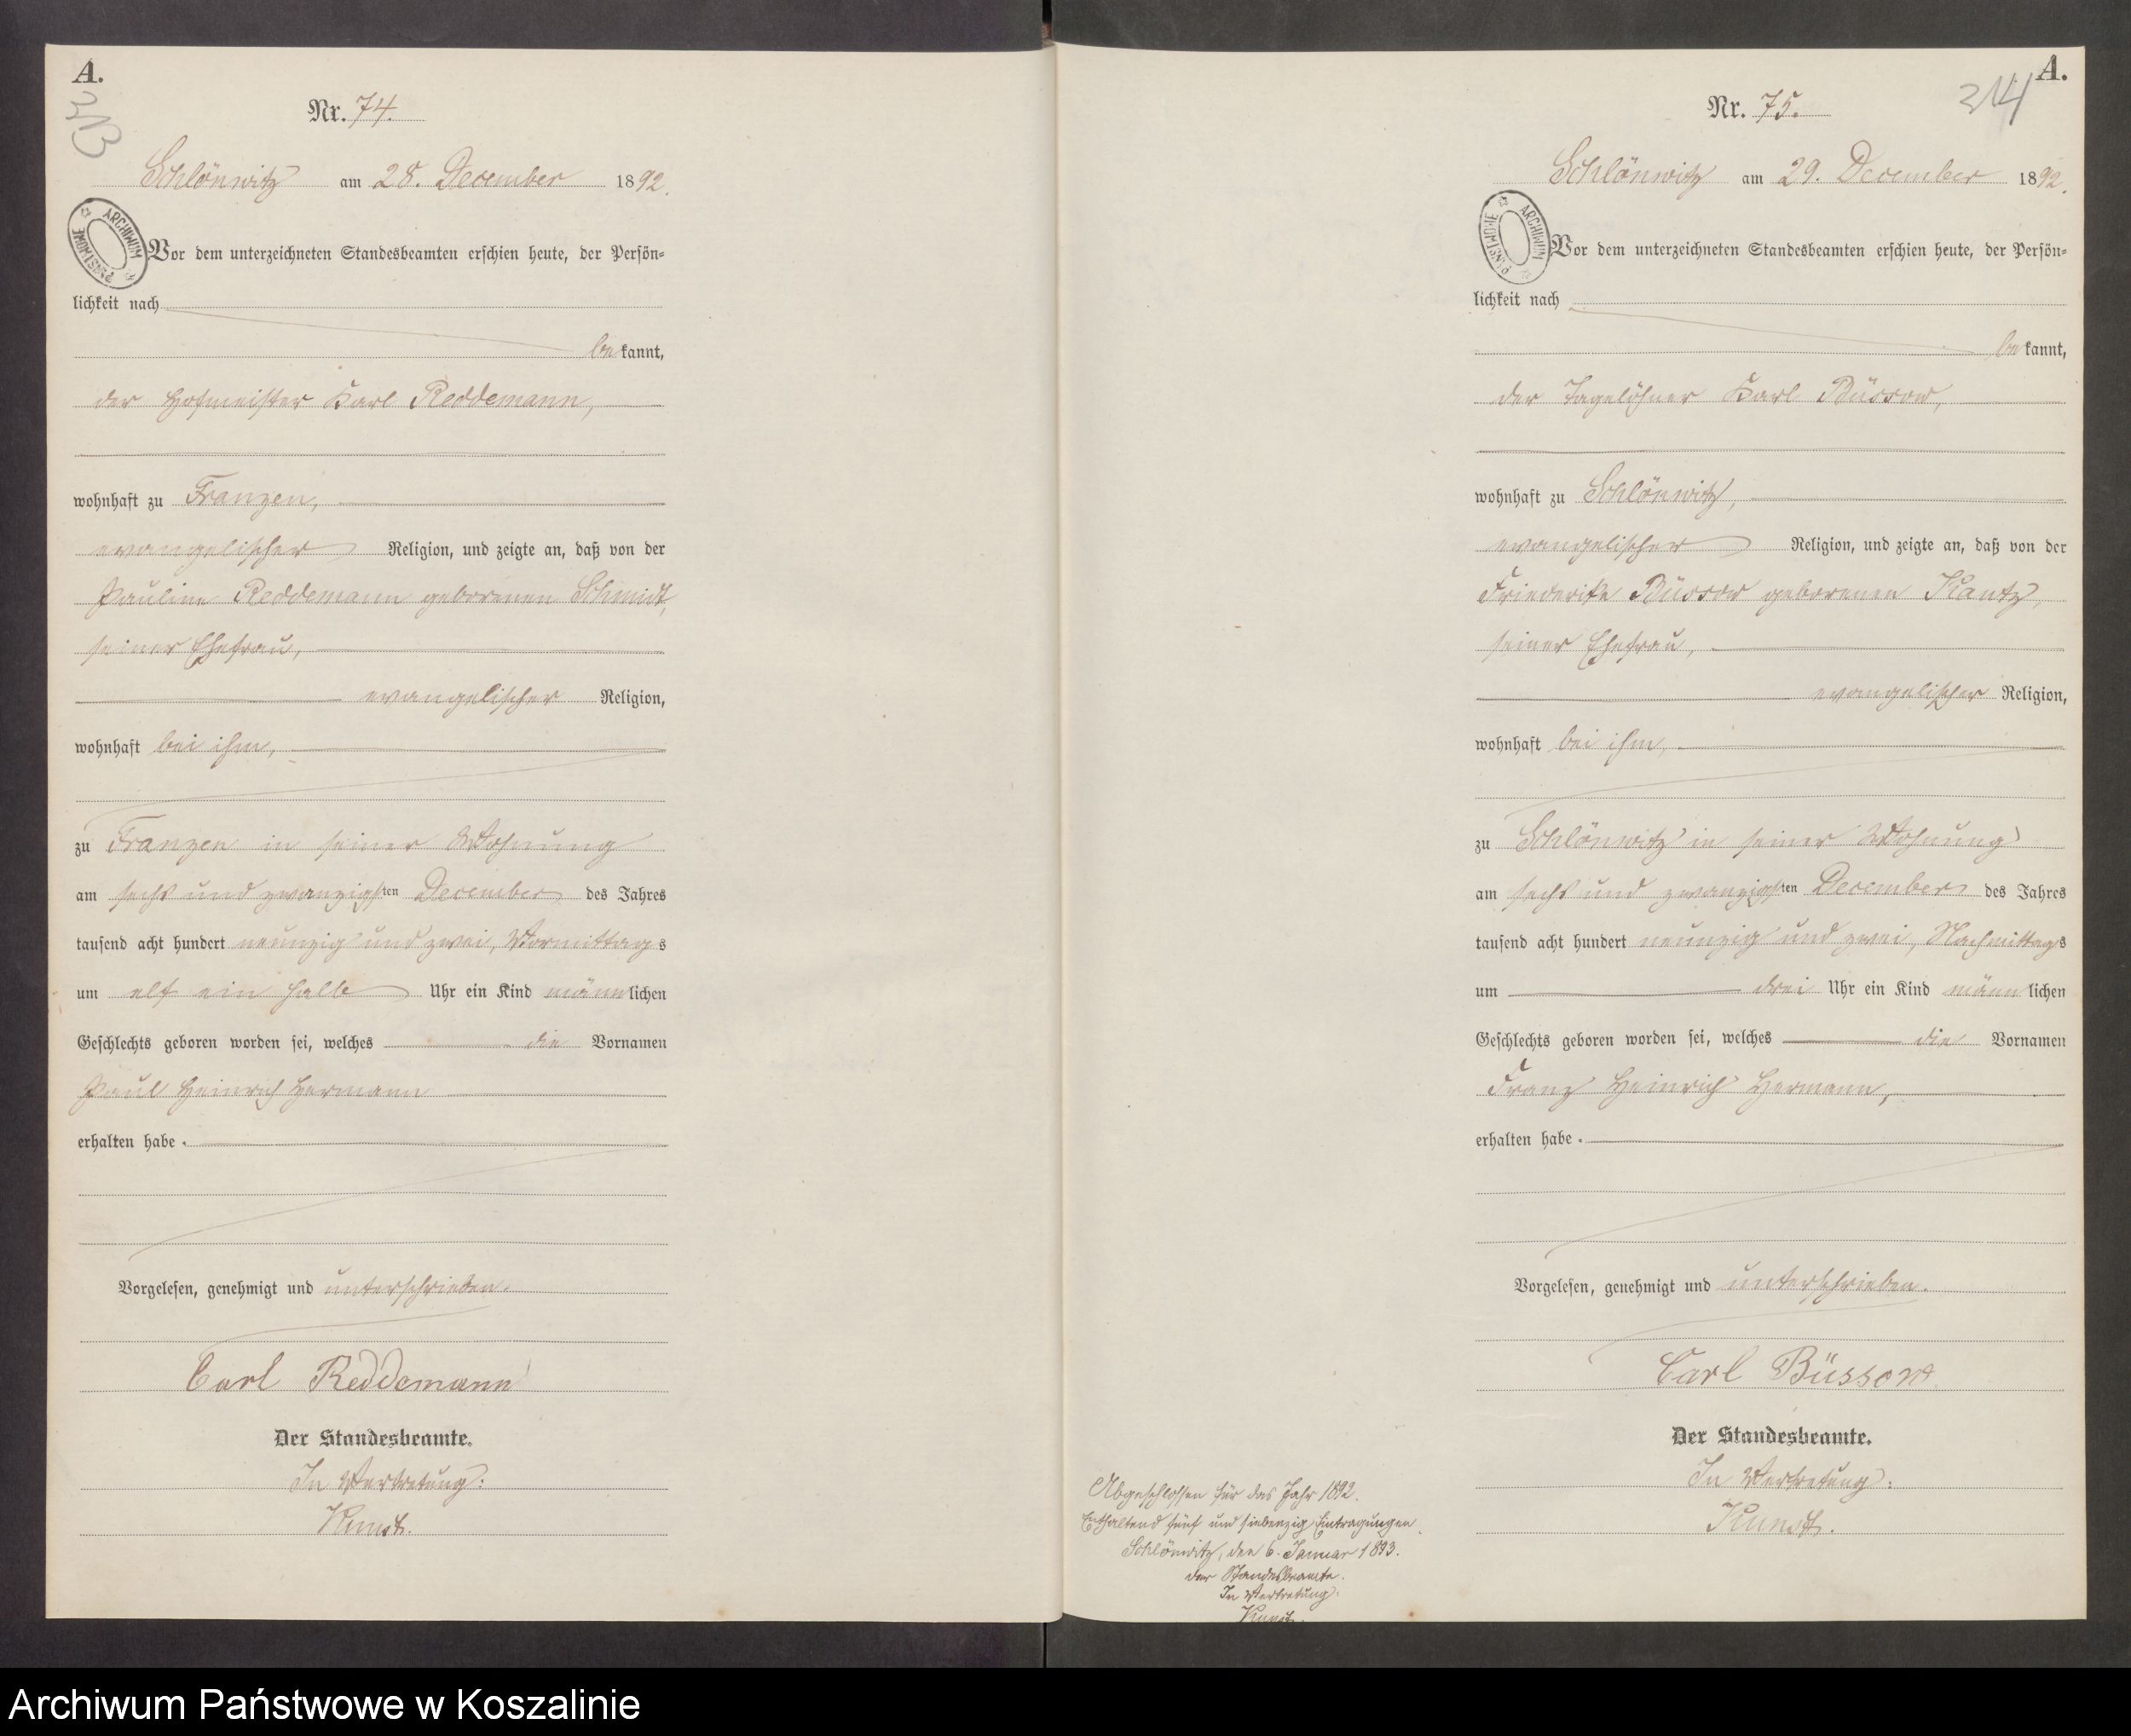 A.
213
Nr. 74.
Schlönwitz am 28. December 1892.
ARCHIWUM PAŃSTWOWE
Vor dem unterzeichneten Standesbeamten erschien heute, der Persön-
lichkeit nach
bekannt,
der Hofmeister Karl Reddemann,
wohnhaft zu Franzen,
evangelischer Religion, und zeigte an, daß von der
Pauline Reddemann geborenen Schmidt,
seiner Ehefrau,
evangelischer Religion,
wohnhaft bei ihm,
zu Franzen in seiner Wohnung
am sechs und zwanzigsten December des Jahres
tausend acht hundert neunzig und zwei, Vormittags
um elf ein halb Uhr ein Kind männlichen
Geschlechts geboren worden sei, welches die Vornamen
Paul Heinrich Hermann
erhalten habe.
Vorgelesen, genehmigt und unterschrieben.
Carl Reddemann
Der Standesbeamte.
In Vertretung:
Kunst.
A.
214
Nr. 75.
Schlönwitz am 29. December 1892.
ARCHIWUM PAŃSTWOWE
Vor dem unterzeichneten Standesbeamten erschien heute, der Persön-
lichkeit nach
bekannt,
der Tagelöhner Karl Büssow,
wohnhaft zu Schlönwitz,
evangelischer Religion, und zeigte an, daß von der
Friederike Büssow geborenen Kantz,
seiner Ehefrau,
evangelischer Religion,
wohnhaft bei ihm,
zu Schlönwitz in seiner Wohnung
am sechs und zwanzigsten December des Jahres
tausend acht hundert neunzig und zwei, Nachmittags
um drei Uhr ein Kind männlichen
Geschlechts geboren worden sei, welches die Vornamen
Franz Heinrich Hermann,
erhalten habe.
Vorgelesen, genehmigt und unterschrieben.
Carl Büssow
Der Standesbeamte.
In Vertretung:
Kunst.
Abgeschlossen für das Jahr 1892.
Enthaltend fünf und siebenzig Eintragungen.
Schlönwitz, den 6. Januar 1893.
der Standesbeamte.
In Vertretung:
Kunst.
Archiwum Państwowe w Koszalinie